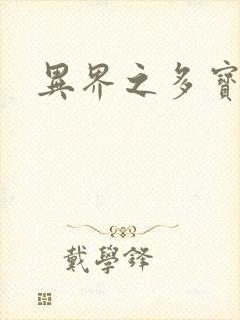 異界之多寶
戴學鋒